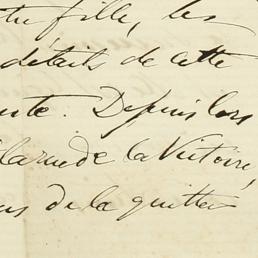 tre fille, les
détails de cette
ute. Depuis lors
la rue de la Victoire,
us de la quitter